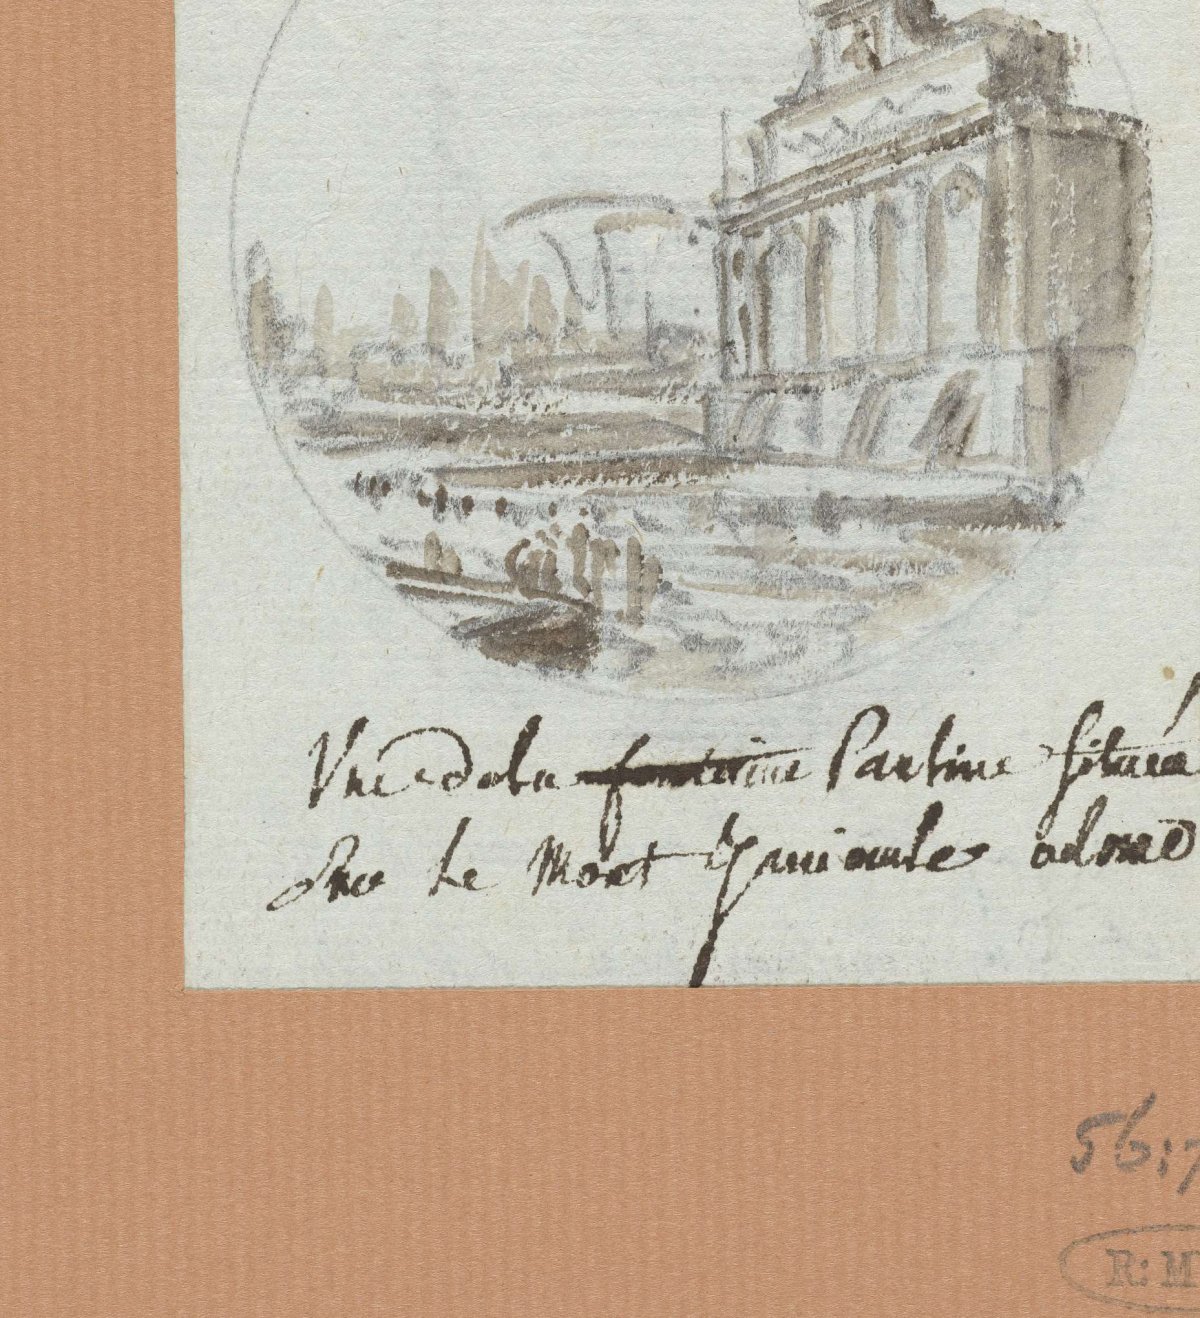 Vue de la fontaine Pauline située
Sur le Mont Janicule a Rome
56:7
R:M